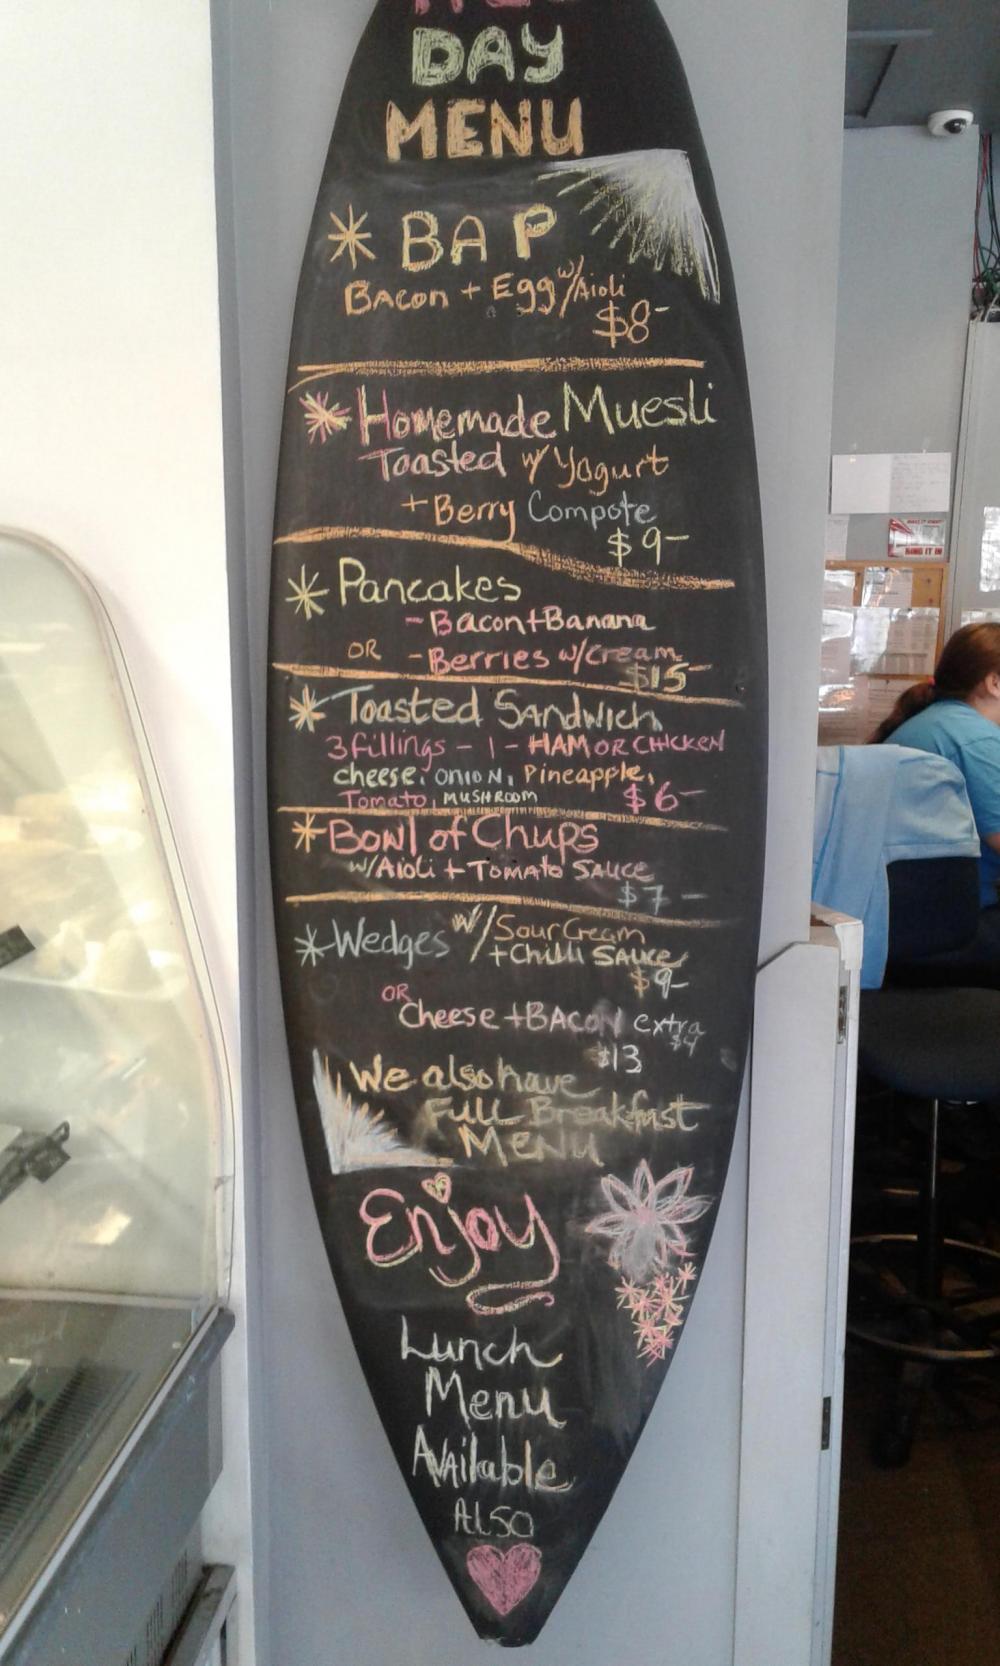 DAY
MENU
BAP
Bacon + Egg w/ Aioli
$8-
Homemade Muesli
Toasted w/ Yogurt
+ Berry Compote
$9-
Pancakes
- Bacon + Banana
OR - Berries w/ Cream
$15-
Toasted Sandwich
3 fillings - 1 - HAM OR CHICKEN
cheese, ONION, Pineapple,
Tomato, MUSHROOM $6-
Bowl of Chups
w/ Aioli + Tomato Sauce
$7-
Wedges w/ Sour Cream
+ Chilli Sauce
$9-
OR
Cheese + BACON extra
$4
$13
We also have
Full Breakfast
MENU
Enjoy
Lunch
Menu
Available
Also
RING IT IN